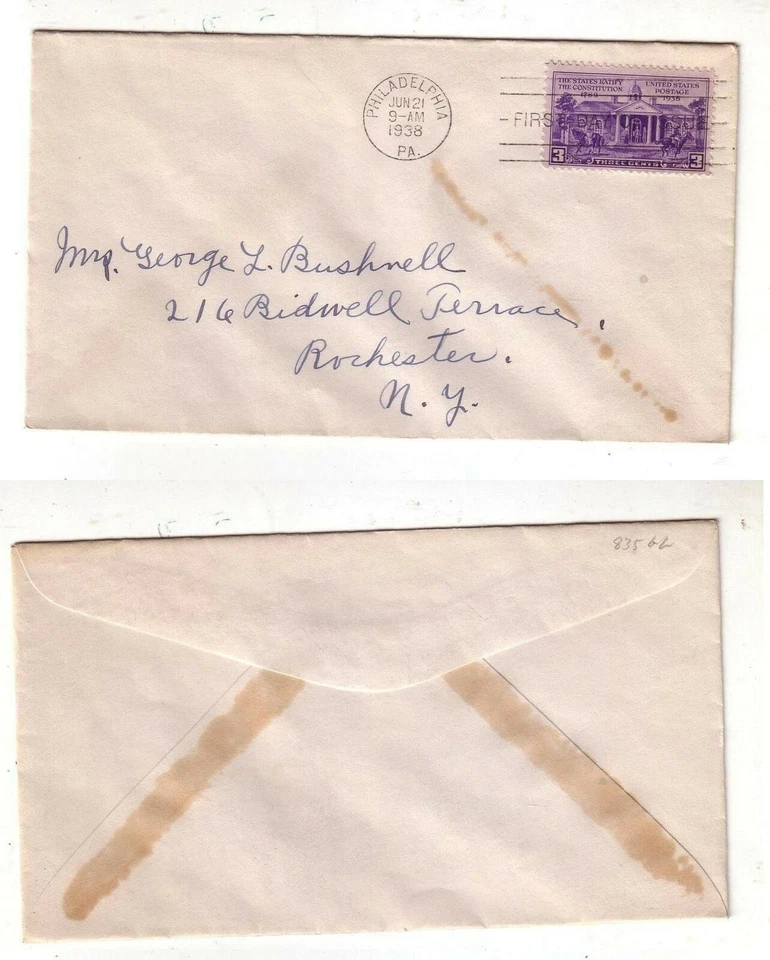 PHILADELPHIA
JUN 21
9-AM
1938
PA.
THE STATES RATIFY
THE CONSTITUTION
1788
UNITED STATES
POSTAGE
1938
FIRST DAY
3 THREE CENTS 3
Mrs. George L. Bushnell
216 Bidwell Terrace,
Rochester.
N. Y.
835